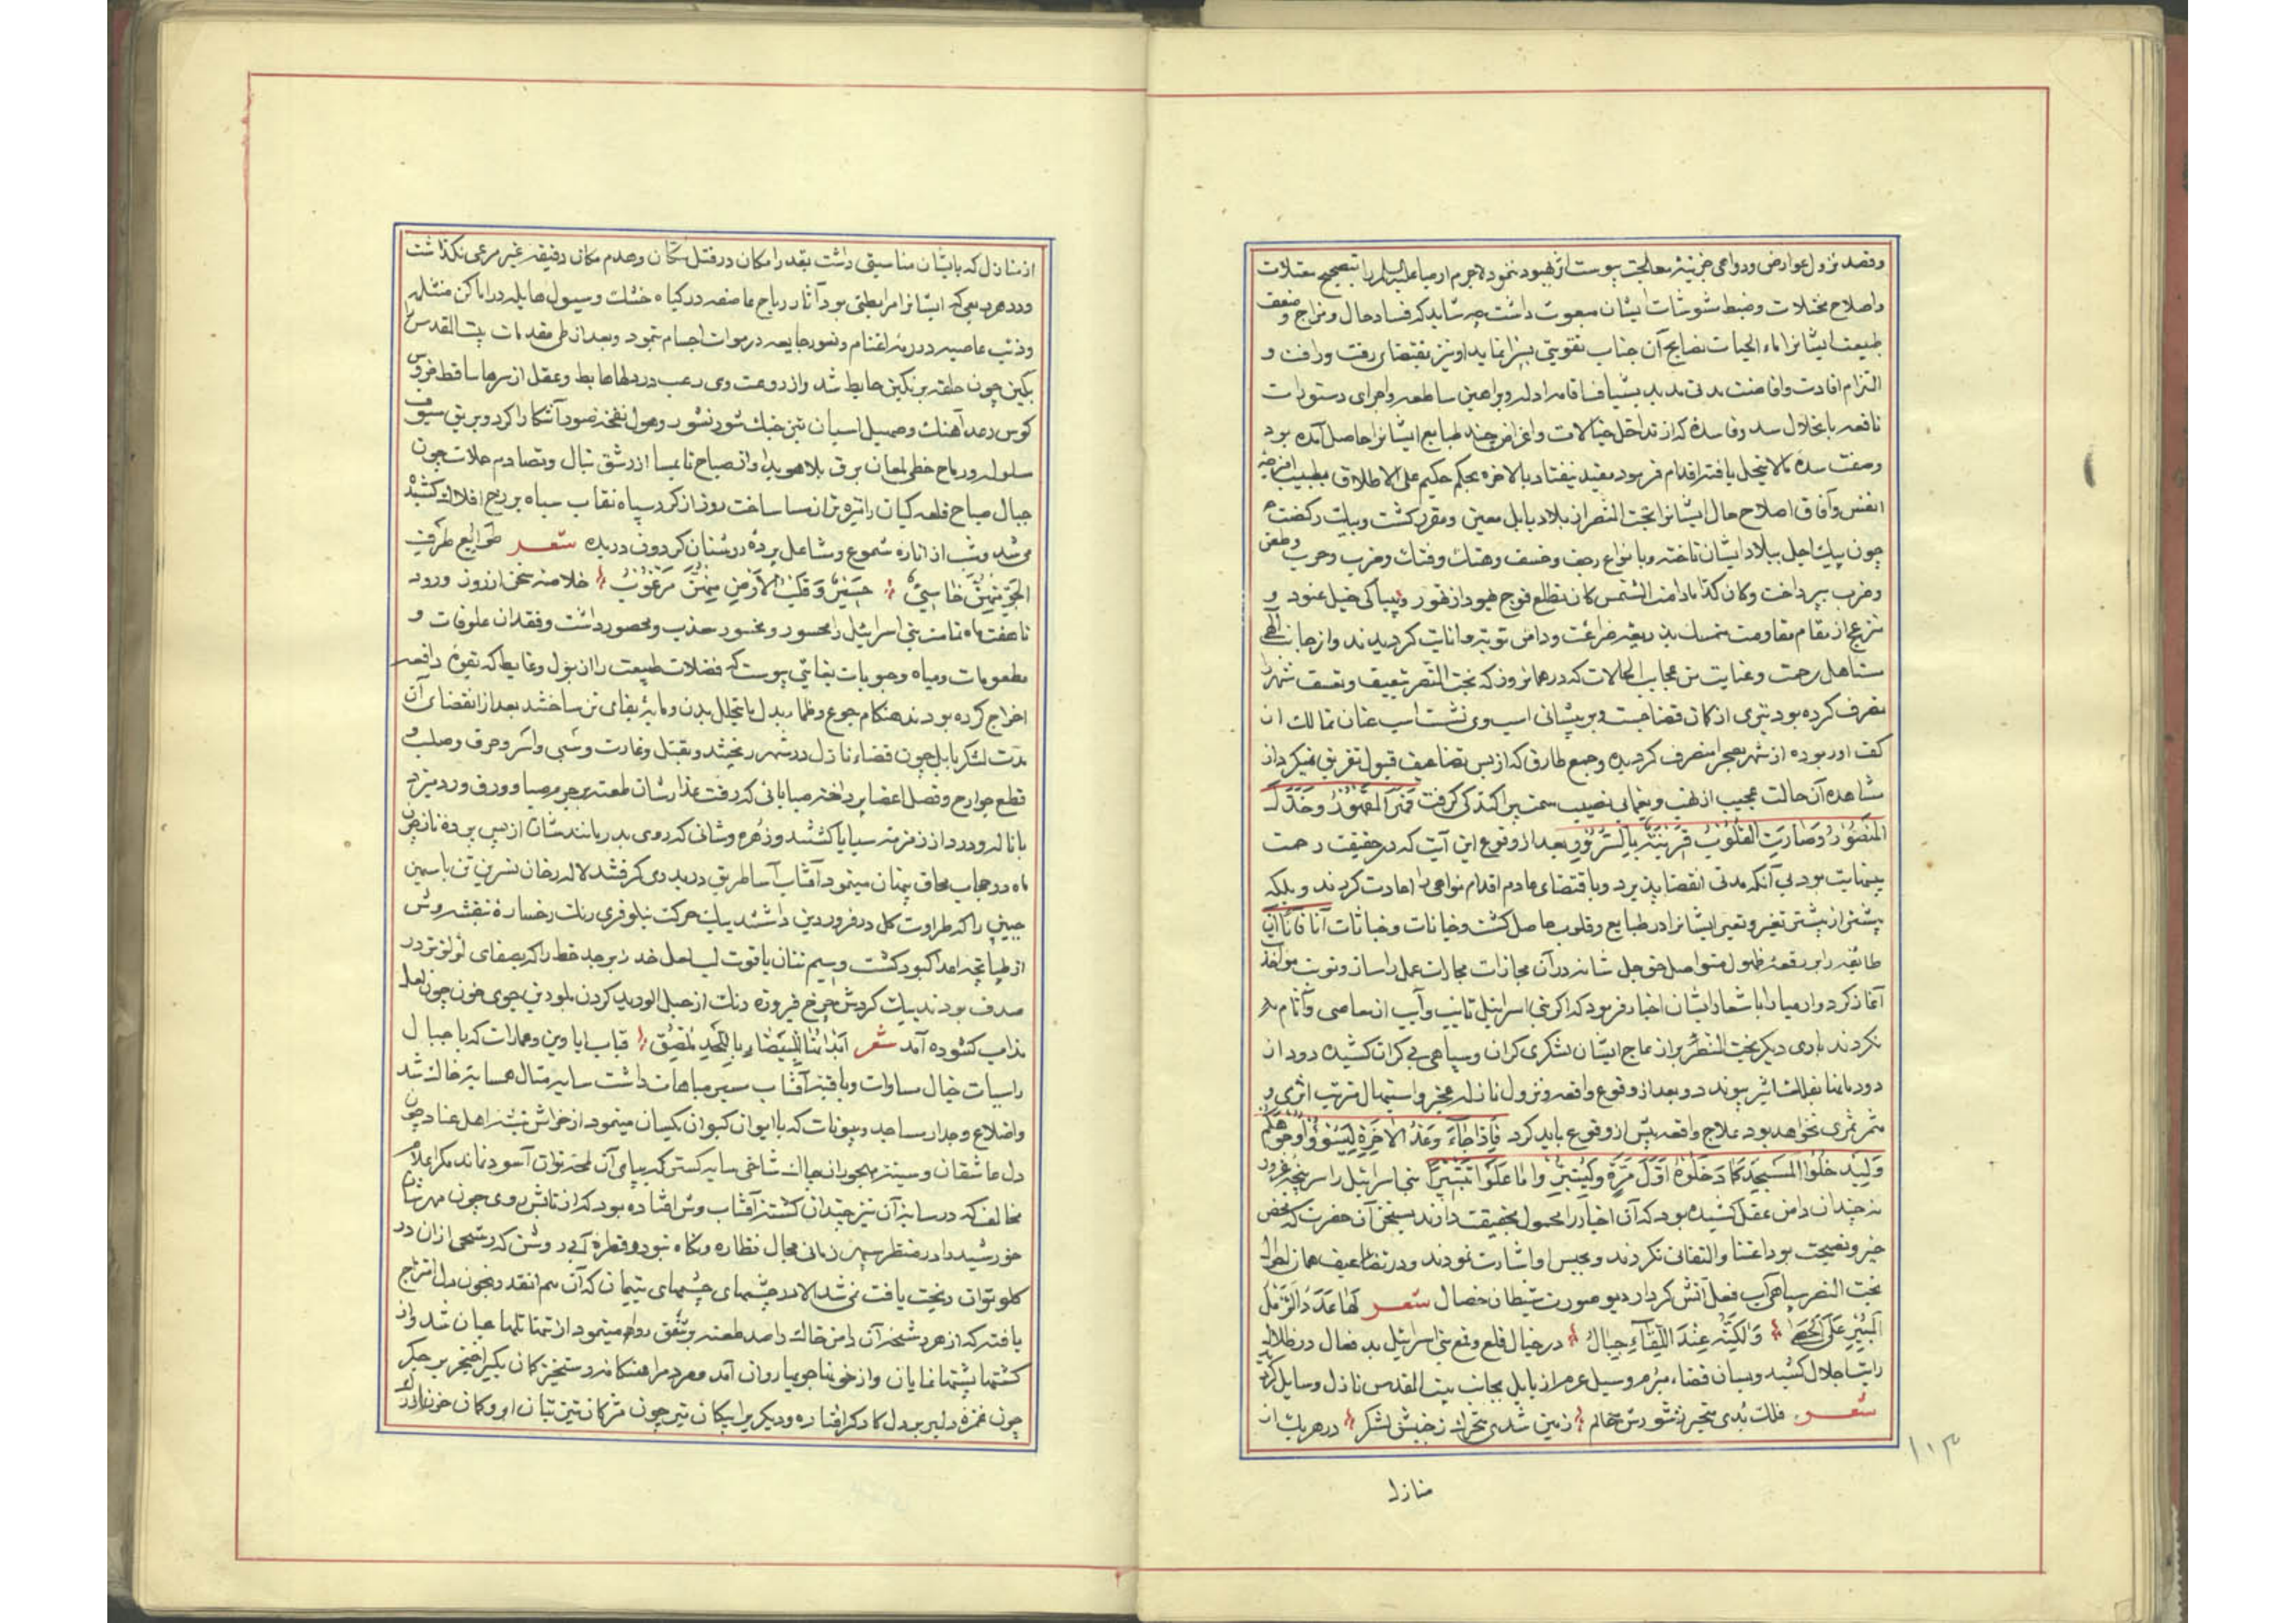 وقصد نزول عوارض ودواعی خزینه معالجت پیوست اثر بهبود ننمود لاجرم ارمیا علیه السلام را بتصحیح معتلات
واصلاح مختلات وضبط مشوشات ایشان مبعوث داشت چه شاید که فساد حال ومزاج وضعف
طبیعت ایشانرا ماء الحیات نصایح آن جناب تقویتی بسزا نماید او نیز بمقتضای رقت ورافت و
التزام افادت وافاضت مدتی مدید بشیافسا قامه ادله وبراهین ساطعه واجرای دستورات
نافعه بانحلال سده فاسده که از تداخل خیالات واغراض چند طبایع ایشانرا حاصل آمده بود
وصفت سده لا ینحل یافته اقدام فرمود مفید نیفتاد بالاخره بحکم حکیم علی الاطلاق وطبیب امزجه
انفس وآفاق اصلاح حال ایشانرا بخت النصر از بلاد بابل معین ومقرر کشت وبیک رکضت
چون پیک اجل ببلاد ایشان تاخته وبا نواع رجف وخسف وهتک وفتک وضرب وحرب وطعن
وضرب بپرداخت وکان کذا مادامت الشمس کان تطلع فوج فیود از فور وبیباکی خیل عنود و
منزعج از مقام مقاومت متمسک بذریعه ضراعت ودامن توبه وانابت کردیدند واز جانب الهی
مستاهل رحمت وعنایت من عجایب الحالات که در همانروز که بخت النصر بتعییف وتعسف شهر را
تصرف کرده بود تیری از کمان قضا جست وبر پیشانی اسب وی نشست اسب عنان تمالک از
کف او ربوده از شهر بصحرا منصرف کردید وجمع طارق که از بس تضاعف قبول تفریق نمیکرد از
مشاهده آن حالت عجیب از نهب ویغما بی نصیب سمت پراکندکی کرفت فنصر المقهور وخذل
المنصور وصارت القلوب قرینة بالسرور بعد از وقوع این آیت که در حقیقت رحمت
بینهایت بود بی آنکه مدتی انقضا پذیرد وباقتضای هادم اقدام نواهی را اعادت کردند وبلکه
بیشتر از پیشتر تغیر وتعیر ایشانرا در طبایع وقلوب حاصل کشت وخیانات وخباثات آنا فآنا این
طایفه را بر رقعه ظهول متواصل حق جل شانه در آن مجازات مجازات عمل راساز ونوبت مواخذه
آغاز کرد وارمیا را باشعار ایشان اخبار فرمود که اکر بنی اسرائیل تایب وآیب از معاصی وآثام
نکردند باری دیکر بخت النصر براز عاج ایشان لشکری کران وسپاهی بی کران کشیده دود از
دودمانها بفلک اثیر پیوندد وبعد از وقوع واقعه ونزول نازله عجز واستیهال مترتب اثری و
مثمر ثمری نخواهد بود علاج واقعه پیش از وقوع باید کرد فاذا جاء وعد الاخرة لیسوؤا وجوهکم
ولیدخلوا المسجد کما دخلوه اول مرة ولیتبروا ما علوا تتبیرا بنی اسرائیل را سر پنجه غرور
نه چندان دامن عقل کشیده بود که آن اخبار را محمول بحقیقت دارند بسخن آن حضرت که محض
خیر ونصیحت بود اعتنا والتفاتی نکردند وبحبس او اشارت نمودند ودر تضاعیف همان احوال
بخت النصر سپاهی آب فعل آتش کردار دیو صورت شیطان خصال شعر لها عدد الرمل
المبیر علی الحصا ولکنه عند اللقاء جبال در خیال قلع وقمع بنی اسرائیل بد فعال در ظلال
رایت اجلال کشید وبسان قضاء مبرم وسیل عرم از بابل بجانب بیت المقدس نازل وسایل کردید
شعر فلک بدی متحیر ز شورش عالم زمین شدی متحرک ز جنبش لشکر در هر یک از
منازل
۱۱۳
از منازل که بایشان مناسبتی داشت بقدر امکان در قتل سکان وهدم مکان دقیقه غیر مرعی نکذاشت
ودر هر ربعی که ایشانرا مرابطتی بود آثار ریاح عاصفه در کیاه خشک وسیول هایله در اماکن
وذئب عاصیه در رمه اغنام ونسور جایعه در موات اجسام نمود وبعد از طی مقدمات بیت المقدس را
بکین چون حلقه بر نکین حایط شد واز روعت وی رعب در دلها هابط وعقل از سرها ساقط خروس
کوس رعد آهنک وصهیل اسبان تیز خبک شور نشور وهول نفخه صور آشکارا کرد وبریق سیوف
مسلوله ورماح خطی لمعان برق بلا هویدا واز صباح تا بمسا از رشق نبال وتصادم حملات چون
جبال صباح قلعه کیان را تیره تر از مسا ساخت روز از کرد سپاه نقاب سیاه بر رخ افلاک کشیده
می شد وشب از اناره شموع ومشاعل پرده روشنان کردون دریده شعر
خلاصه سخن از روز ورود
تا هفت ماه تمامت بنی اسرائیل را محسور ومحسور معذب ومحصور داشت وفقدان علوفات و
مطعومات ومیاه وحبوبات بغایتی پیوست که فضلات طبیعت را از بول وغایط که بقوه دافعه
اخراج کرده بودند هنکام جوع وظماء بدل ما یتحلل بدن ومایه بقای تن ساختند بعد از انقضای آن
مدت لشکر بابل چون قضاء نازل در شهر ریختند وبقتل وغارت وسبی واسر وحرق وصلب و
قطع جوارح وفصل اعضا پرداختند صباباتی که رقت عذارشان طعنه بر جرم صبا وورق ورد میزد
با ناله ودرد از زمره سبایا کشتند وزهره وشانی که روی بدر مانندشان از پس پرده ناز چون
ماه در حجاب محاق پنهان مینمود آفتاب آسا طریق دربدری کرفتند لاله رخان نسرین تن یاسمین
جبین را که طراوت کل در فروردین داشتند بیک حرکت نیلوفری رنک رخساره بنفشه وش
از طپانچه اعدا کبود کشت وسیم تنان یاقوت لب لعل خد زبرجد خط را که بصفای لؤلؤ تر در
صدف بودند بیک کردش چرخ فیروزه رنک از حبل الورید کردن بلورین جوی خون چون لعل
مذاب کشوده آمد شعر قباب ایاوین وعمارات که با جبال
راسیات خیال مساوات وبا قبه آفتاب سپهر مباهات داشت سایه مثال همسایه خاک شد
واضلاع وجدار مساجد وبیوتات که با ایوان کیوان یکسان مینمود از خراش تیشه اهل عناد چون
دل عاشقان وسینه مهجوران چاک شاخی سایه کستر که بپای آن لحظه توان آسود نماند مکر اعلام
مخالف که در سایه آن نیز چندان کشته آفتاب وش افتاده بود که از تابش روی چون مهرشان
خورشید را در منظر سپهر زمانی مجال نظاره ونکاه نبود وقطره آبی روشن که رشحی از ان در
کلو توان ریخت یافت نمی شد الا در چشمهای چشمهای یتیمان که آن هم انقدر بخون دل امتزاج
یافته که از هر رشحه آن دامن خاک را صد طعنه بر شفق روا میتمود از تنها تلها عیان شد واز
کشتها پشتها نمایان واز خونها جویها روان آمد ومردم را هنکامه رستخیز کمان یکیرا خنجر بر جکر
چون غمزه دلبر بر دل کارکر افتاده ودیکریرا پیکان تیر چون مژکان تیز بتان ابرو کمان خون ازر